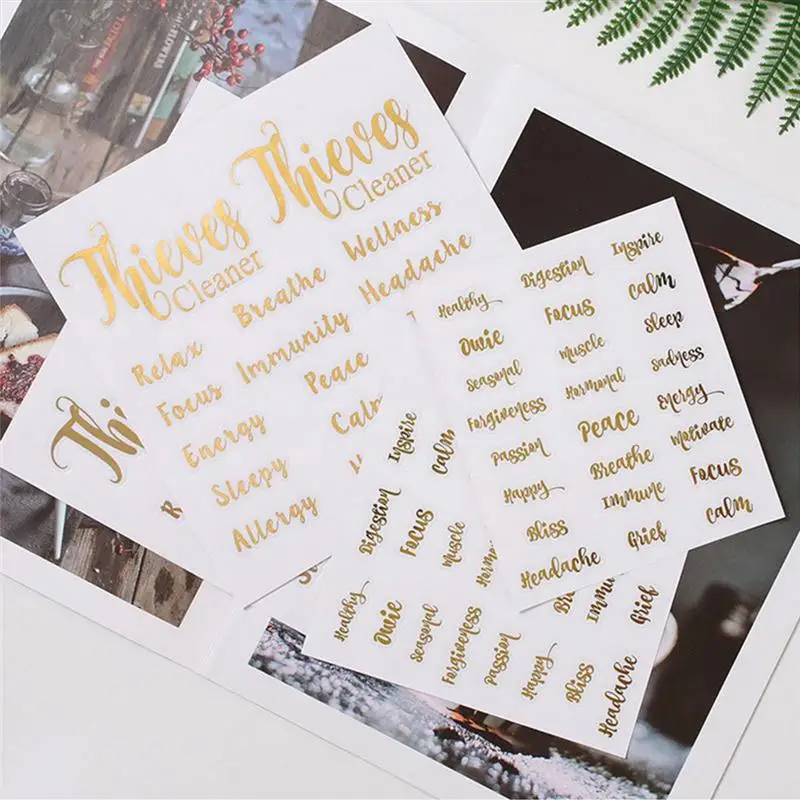 Thieves Thieves
Cleaner Cleaner
Relax Breathe Wellness
Focus Immunity Headache
Energy Peace
Sleepy Calm
Allergy
Thi
Healthy Digestion Inspire
Owie Focus Calm
Seasonal Muscle Sleep
Forgiveness Hormonal Sadness
Passion Peace Energy
Happy Breathe Motivate
Bliss Immune Focus
Headache Grief Calm
Inspire Calm
Digestion Focus Muscle
Healthy Owie Seasonal Forgiveness Passion Happy Bliss Headache
Grief